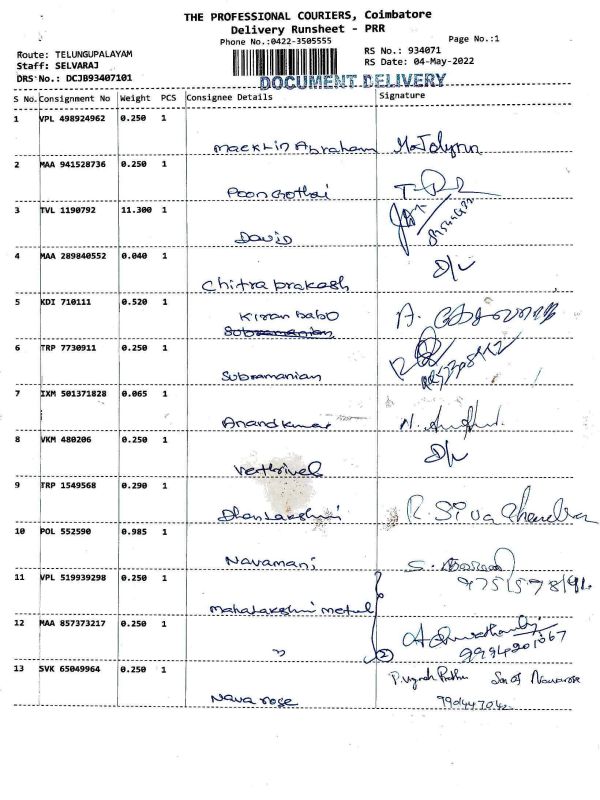 THE PROFESSIONAL COURIERS, Coimbatore
Delivery Runsheet - PRR
Phone No.:0422-3505555
Page No.:1
Route: TELUNGUPALAYAM
RS No.: 934071
Staff: SELVARAJ
RS Date: 04-May-2022
DRS No.: DCJB93407101
DOCUMENT DELIVERY
S No. Consignment No Weight PCS Consignee Details Signature
1 VPL 498924962 0.250 1
Macklin Abraham
2 MAA 941528736 0.250 1
Poongothai
3 TVL 1190792 11.300 1
David
4 MAA 289840552 0.040 1 D/L
Chitra prakash
5 KDI 710111 0.520 1
Kiran babo
Subramanian
6 TRP 7730911 0.250 1
Subramanian
7 IXM 501371828 0.065 1
Anandkumar
8 VKM 480206 0.250 1 D/L
Vetrivel
9 TRP 1549568 0.290 1
Dhanlakshmi R. Siva Chandra
10 POL 552590 0.985 1
Navamani
11 VPL 519939298 0.250 1
Mahalakshmi metul
12 MAA 857373217 0.250 1
" 2
13 SVK 65049964 0.250 1
P. Vignesh Prabhu Son of Navarose
Nava rose